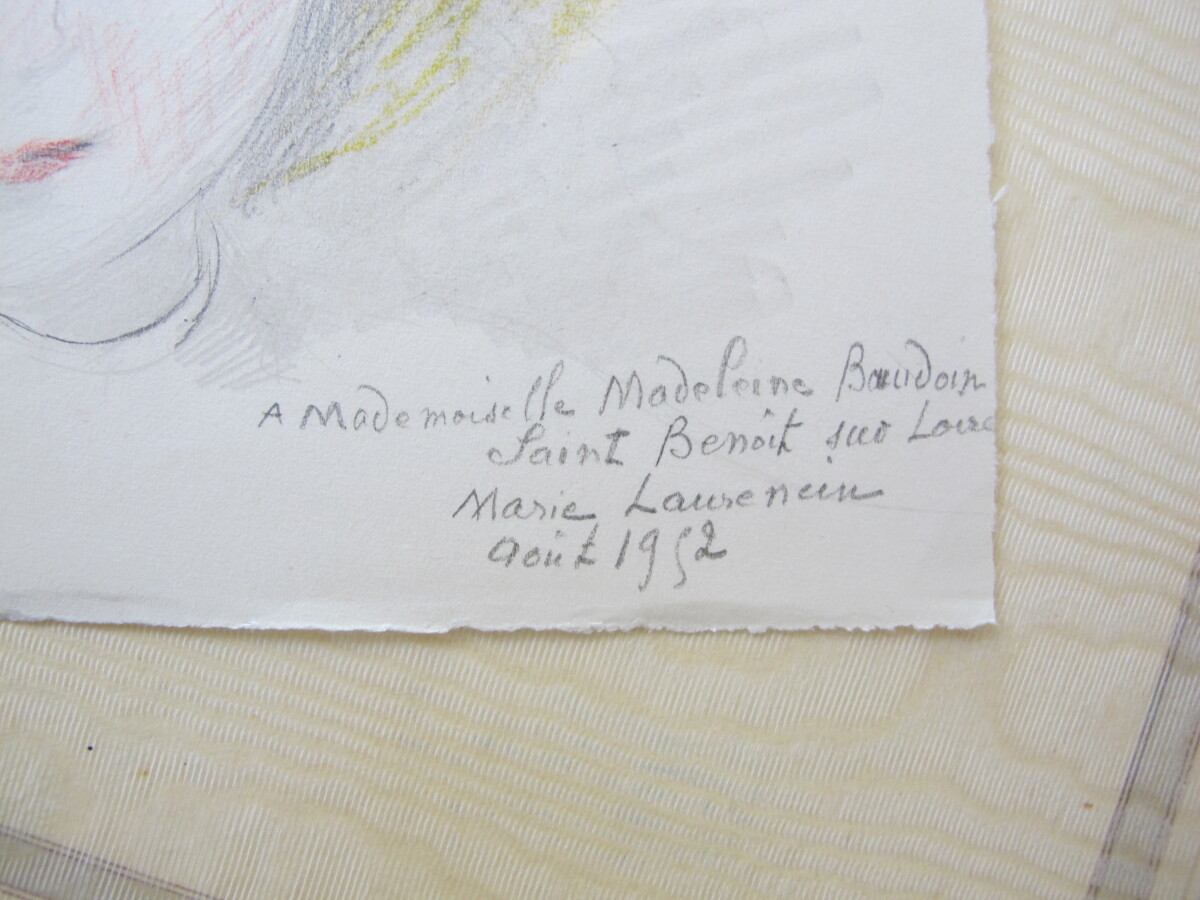 A Mademoiselle Madeleine Baudoin
Saint Benoît sur Loire
Marie Laurencin
Août 1952